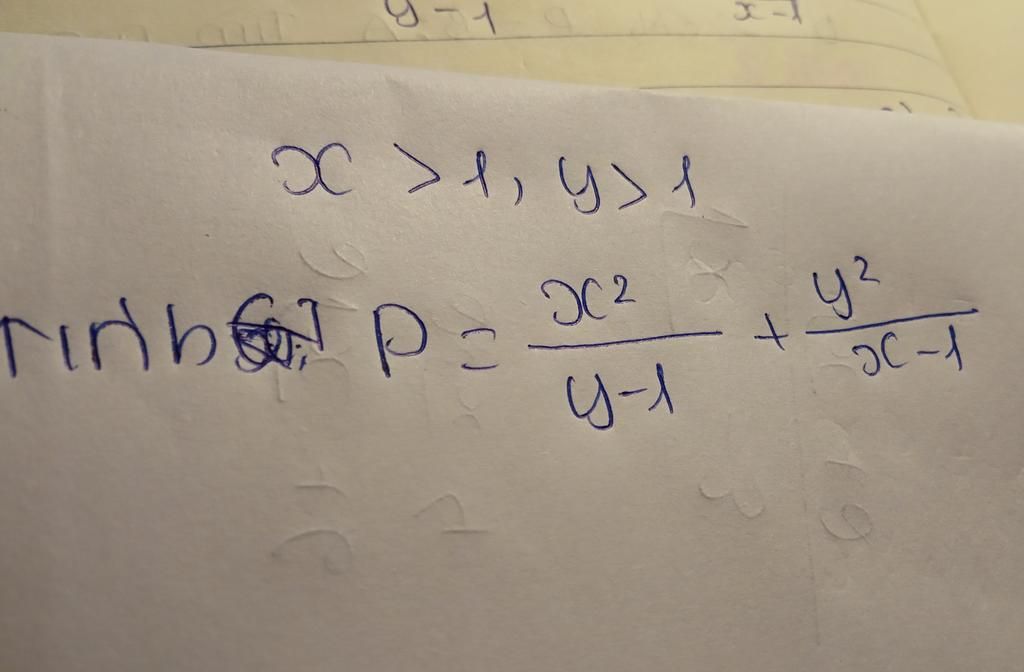 y-1 x-1
x > 1, y > 1
P = x²/(y-1) + y²/(x-1)